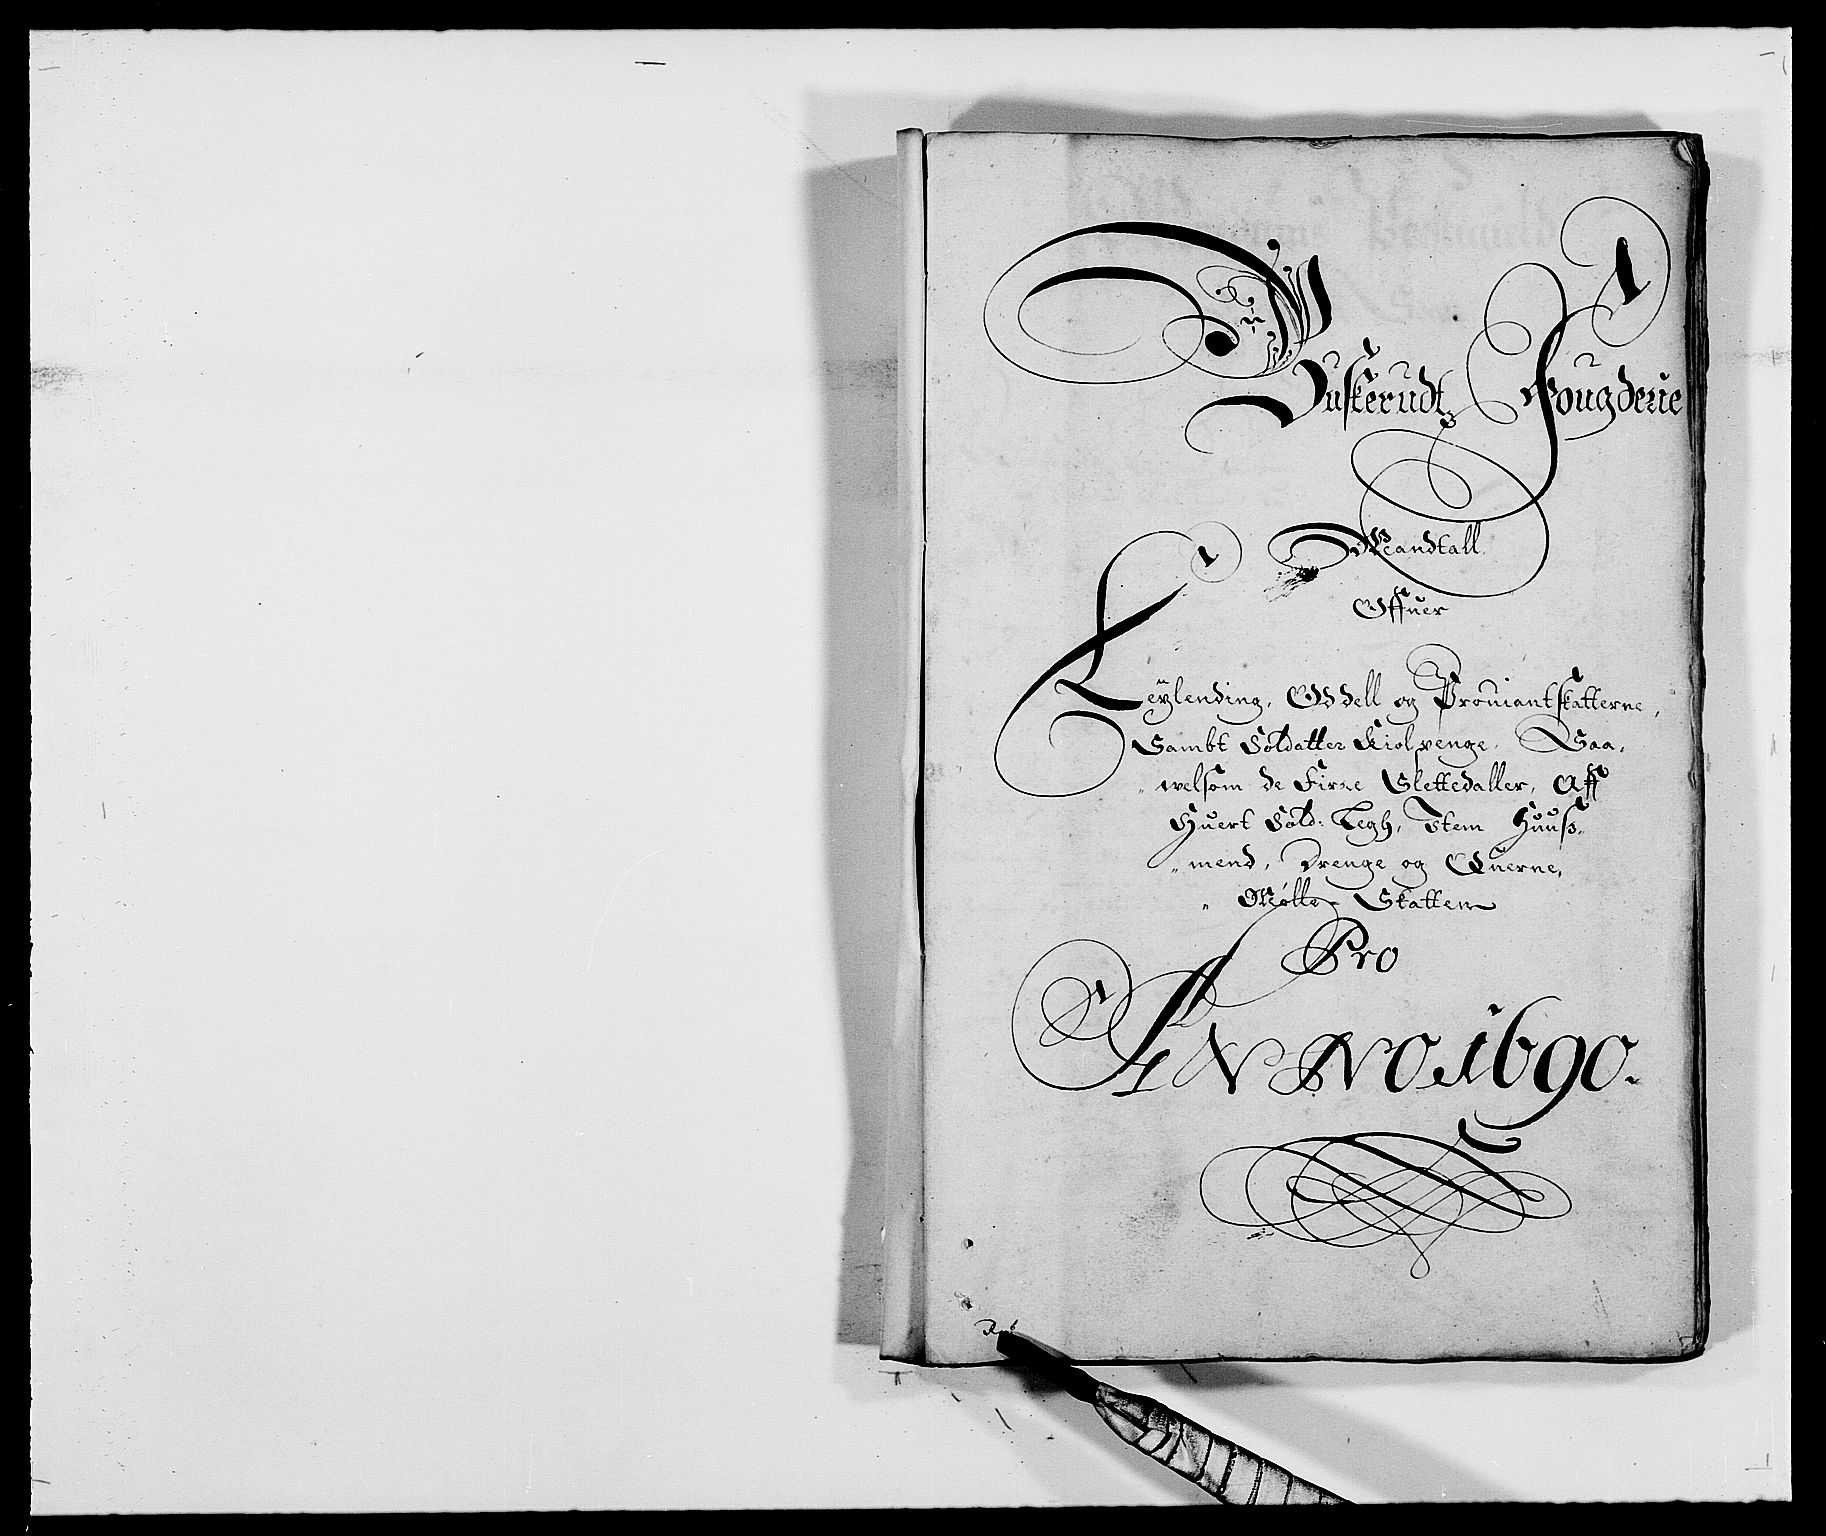 Buskerudtz Fougderie
Mandtall
Offuer
Leylending, Oddell og Prouiantskatterne,
Sambt Soldatter Kiolpenge, Saa,
" welsom de Firre Slettedaller, Aff
Huert Sold: Legh, Item Huuss„
„ mend, Drenge og Querne,
" Mølle- Skatten
Pro
ANNO. 1690.